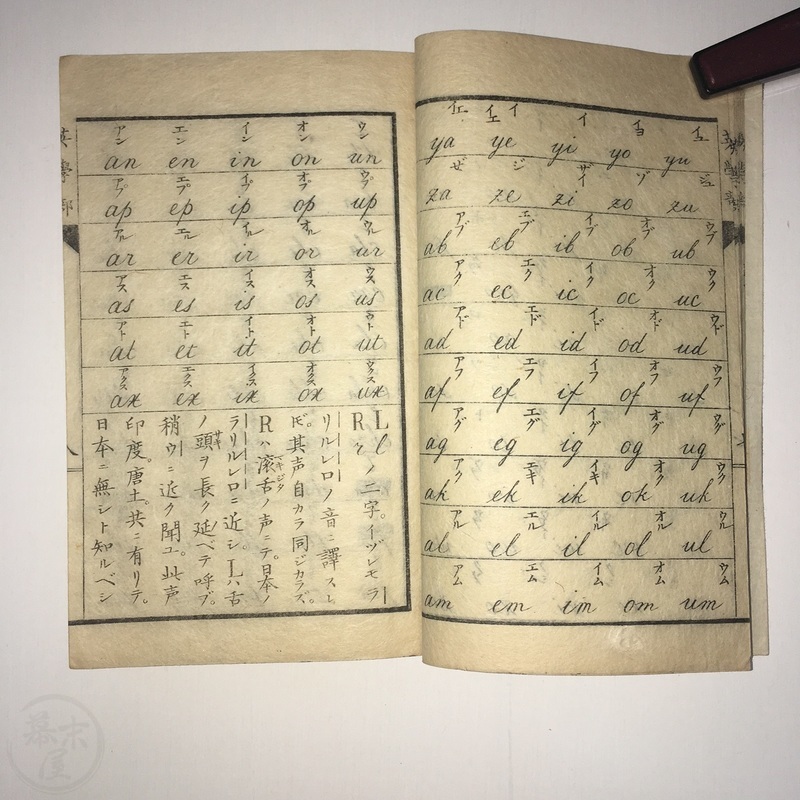 ya ye yi yo yu
ザ ジ ザイ ゾ ジュ
za ze zi zo zu
アブ エブ イブ オブ ウブ
ab eb ib ob ub
アク エク イク オク ウク
ac ec ic oc uc
アド エド イド オド ウド
ad ed id od ud
アフ エフ イフ オフ ウフ
af ef if of uf
アグ エグ イグ オグ ウグ
ag eg ig og ug
アク エキ イキ オク ウク
ak ek ik ok uk
アル エル イル オル ウル
al el il ol ul
アム エム イム オム ウム
am em im om um
アン エン イン オン ウン
an en in on un
アプ エプ イプ オプ ウプ
ap ep ip op up
アル エル イル オル ウル
ar er ir or ur
アス エス イス オス ウス
as es is os us
アト エト イト オト ウト
at et it ot ut
アクス エクス イクス オクス ウクス
ax ex ix ox ux
L l
R r ノ二字。イヅレモラ
リルレロノ音ニ譯スレ
𪜈。其声自カラ同ジカラズ。
Rハ滚舌ノ声ニテ。日本ノ
マキジタ
ラリルレロニ近シ。Lハ舌
ノ頭ヲ長ク延ベテ呼ブ。
サキ
稍ウニ近ク聞ユ。此声
印度。唐土。共ニ有リテ。
日本ニ無シト知ルベシ
幕末屋